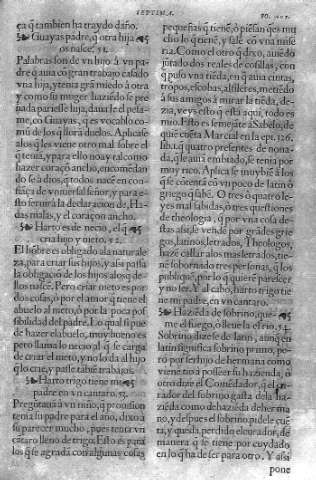 SEPTIMA.
ça q tambien ha traydo daño.
Guayas padre, q otra hija
os nasce. 51.
Palabras son de vn hijo à vn pa-
dre q auia cõ gran trabajo casado
vna hija, y tenia grã miedo à otra
y como su muger huziesse
pariesse hija, dauale el pesa-
me, co Guayas, q es vocablo co-
mú de los q llorã duelos. Aplicase
alos q les viene otro mal sobre el
q tenia, y para ello no ay tal como
hazer coraçõ ancho, encomẽdan
do se à dios, q todos nascẽ en con-
fiãça de vn mesmo señor, y para es-
to seruira la declaracion de, Ha-
das malas, y el coraçon ancho.
Harto es de necio, el q
cria hijo y nieto. 52.
El hõbre es obligado ala naturale
za, para criar sus hijos, y assi passa
la obligaciõ de los hijos alos q de
llos nascẽ. Pero criar nieto es por
dos cosas, o por el amor q tiene el
abuelo al nieto, o por la poca pos
sibilidad del padre. Lo qual si pue
de hazer el abuelo, muy bueno es
pero llama lo necio, q se carga
de criar el nieto, y no lo da al hijo
q lo crie, y passe tãbiẽ trabajos.
Harto trigo tiene mi
padre en vn cantaro. 53.
Pregũtauã à vn niño, q prouision
tenia su padre para el año, dixo à
su parecer mucho, pues tenia vn
cãtaro lleno de trigo. Esto es para
los q se agradã con algunas cosas
pequeñas q tienẽ, ò piẽsan q es mu
cho lo q tienẽ, y sale cõ vna mise
ria. Como el otro q dixo, auiẽdo
jũtado dos reales de cosillas, con
q puso vna tiẽda, en q auia cintas,
trompos, escobas, alfileres, metiẽdo
à sus amigos à mirar la tiẽda, de-
zia, veys esto q està aqui, todo es
mio. Esto es semejãte à Sabelo, de
que cuẽta Marcial en la epi. 126.
lib. q quatro presentes de nona-
da, q le auiã embiado, se tenia por
muy rico. Aplica se muy biẽ à los
q se cõtentã cõ vn poco de latin ò
griego q sabẽ. O tres ò quatro le-
yes mal sabidas, ò tres questiones
de theologia, q por vna cosa de-
stas assi, se vendẽ por grãdes grie
gos, latinos, letrados, Theologos,
hazẽ callar alos mas letrados, tie-
nẽ sobornado tres personas, q los
publiquẽ, por lo q quierẽ parecer
y no ser. Y al cabo, harto trigo tie
ne mi padre, en vn cantaro.
Haziẽda de sobrino, que-
me el fuego, ò lleue la el rio. 54.
Sobrino
latin
significa sobrino primo, pe-
rò por ser hijo de hermana como
viene tio à posseer su haziẽda, ò
otro dize el Comẽdador, q el
rador del sobrino gasta dela ha-
ziẽda como de haziẽda de herma
no, y despues el sobrino, pide le cuẽ
ta, y queda perdido el curador, de
manera q se tiene por cuydado
en lo q ha de ser para otro. Y assi
pone